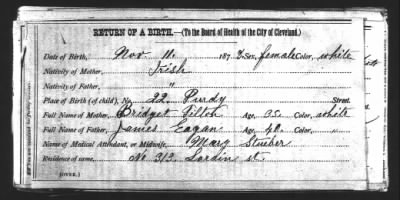 RETURN OF A BIRTH.—(To the Board of Health of the City of Cleveland.)
Date of Birth, Nov. 11. 187 Sex, female Color, white
Nativity of Mother, Irish
Nativity of Father, "
Place of Birth (of child), No. 22. Purdy Street.
Full Name of Mother, Bridget Age, 35. Color, white
Full Name of Father, James Eagan Age, 40. Color, "
Name of Medical Attendant, or Midwife, Mary Stueber
Residence of same, No 312. st.
(OVER.)